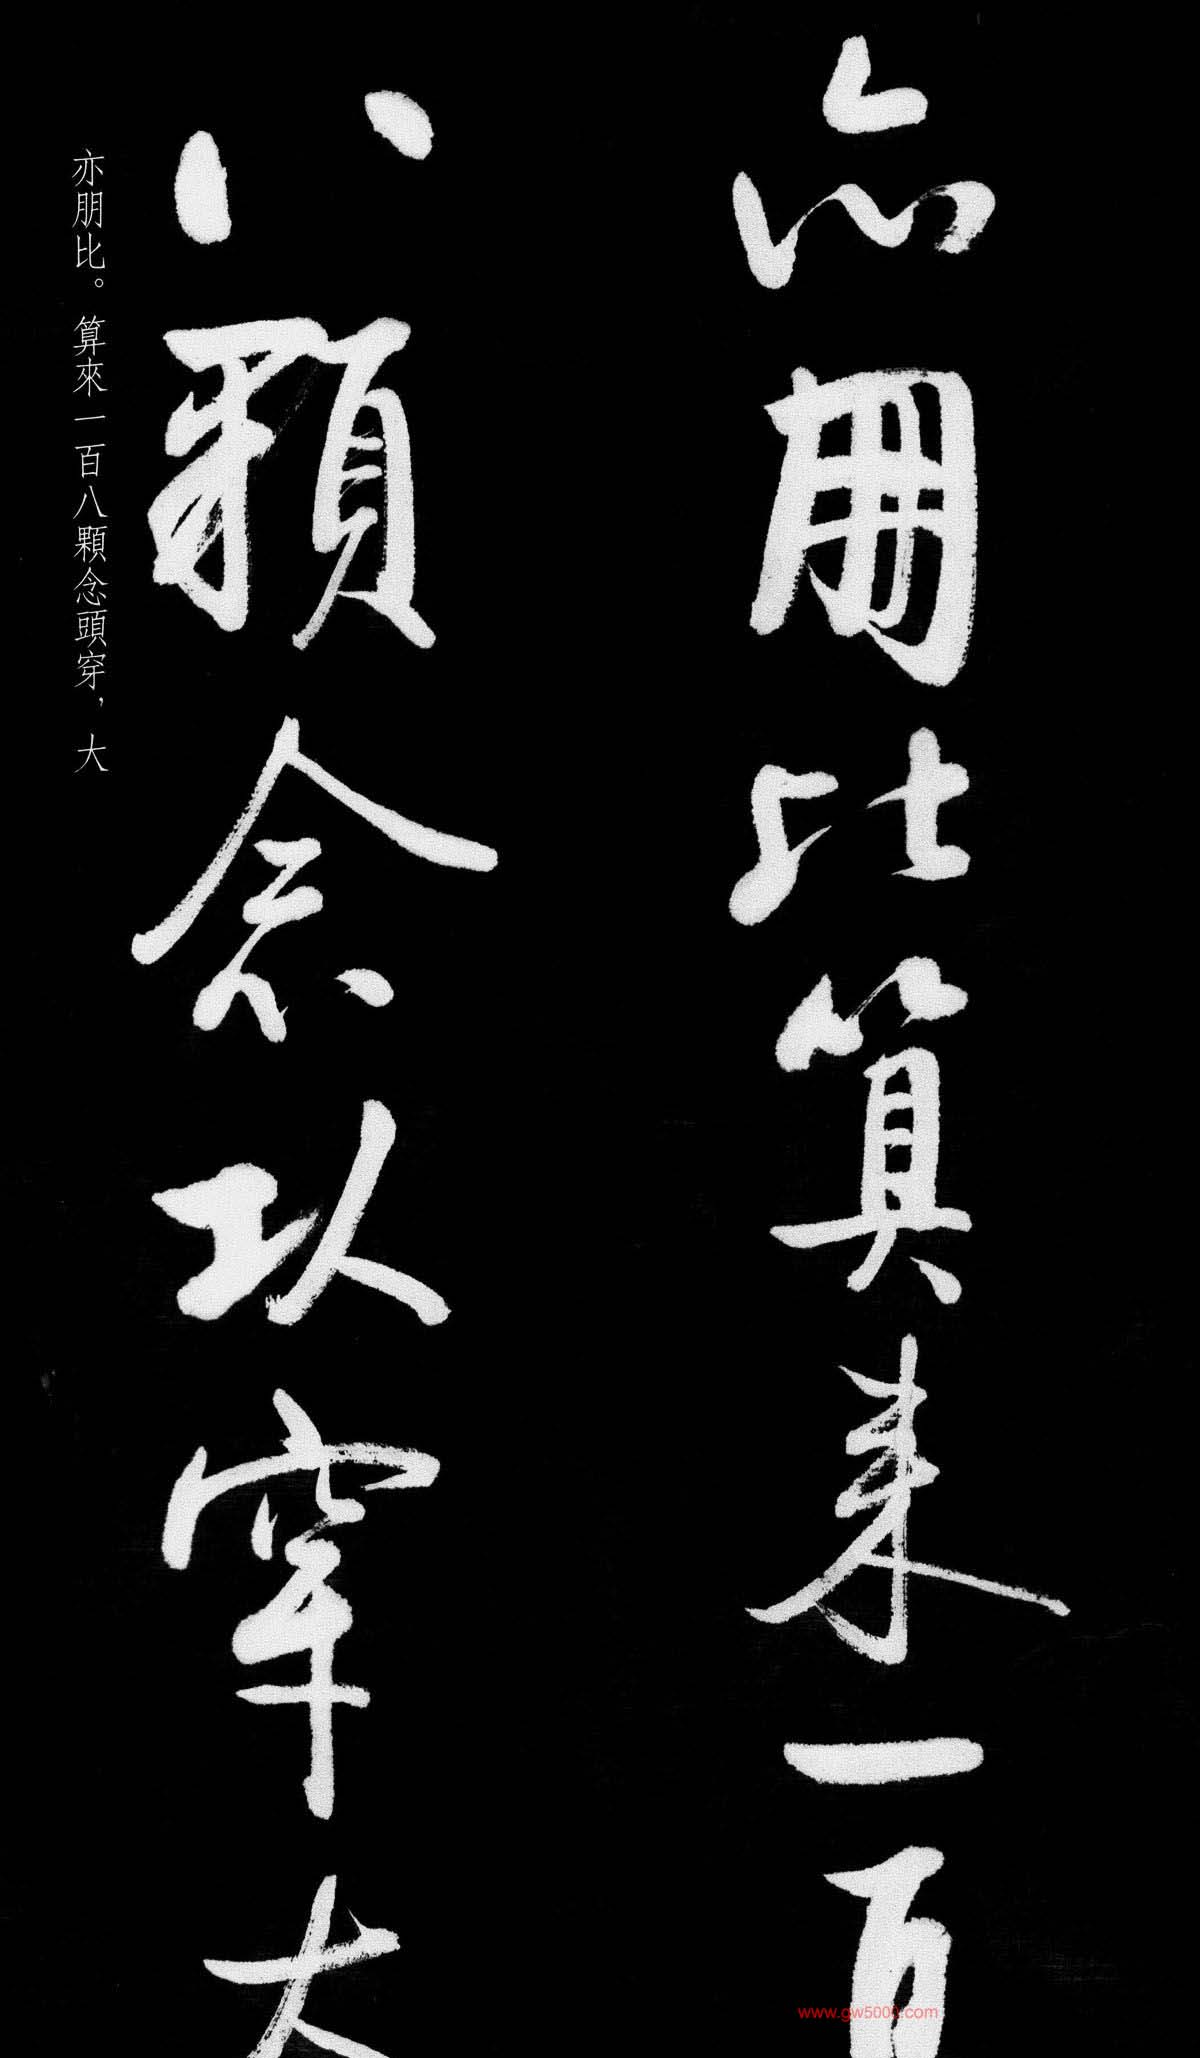 亦朋比算來一百
八顆念以穿大
亦朋比。算來一百八顆念頭穿，大
www.gw5000.com